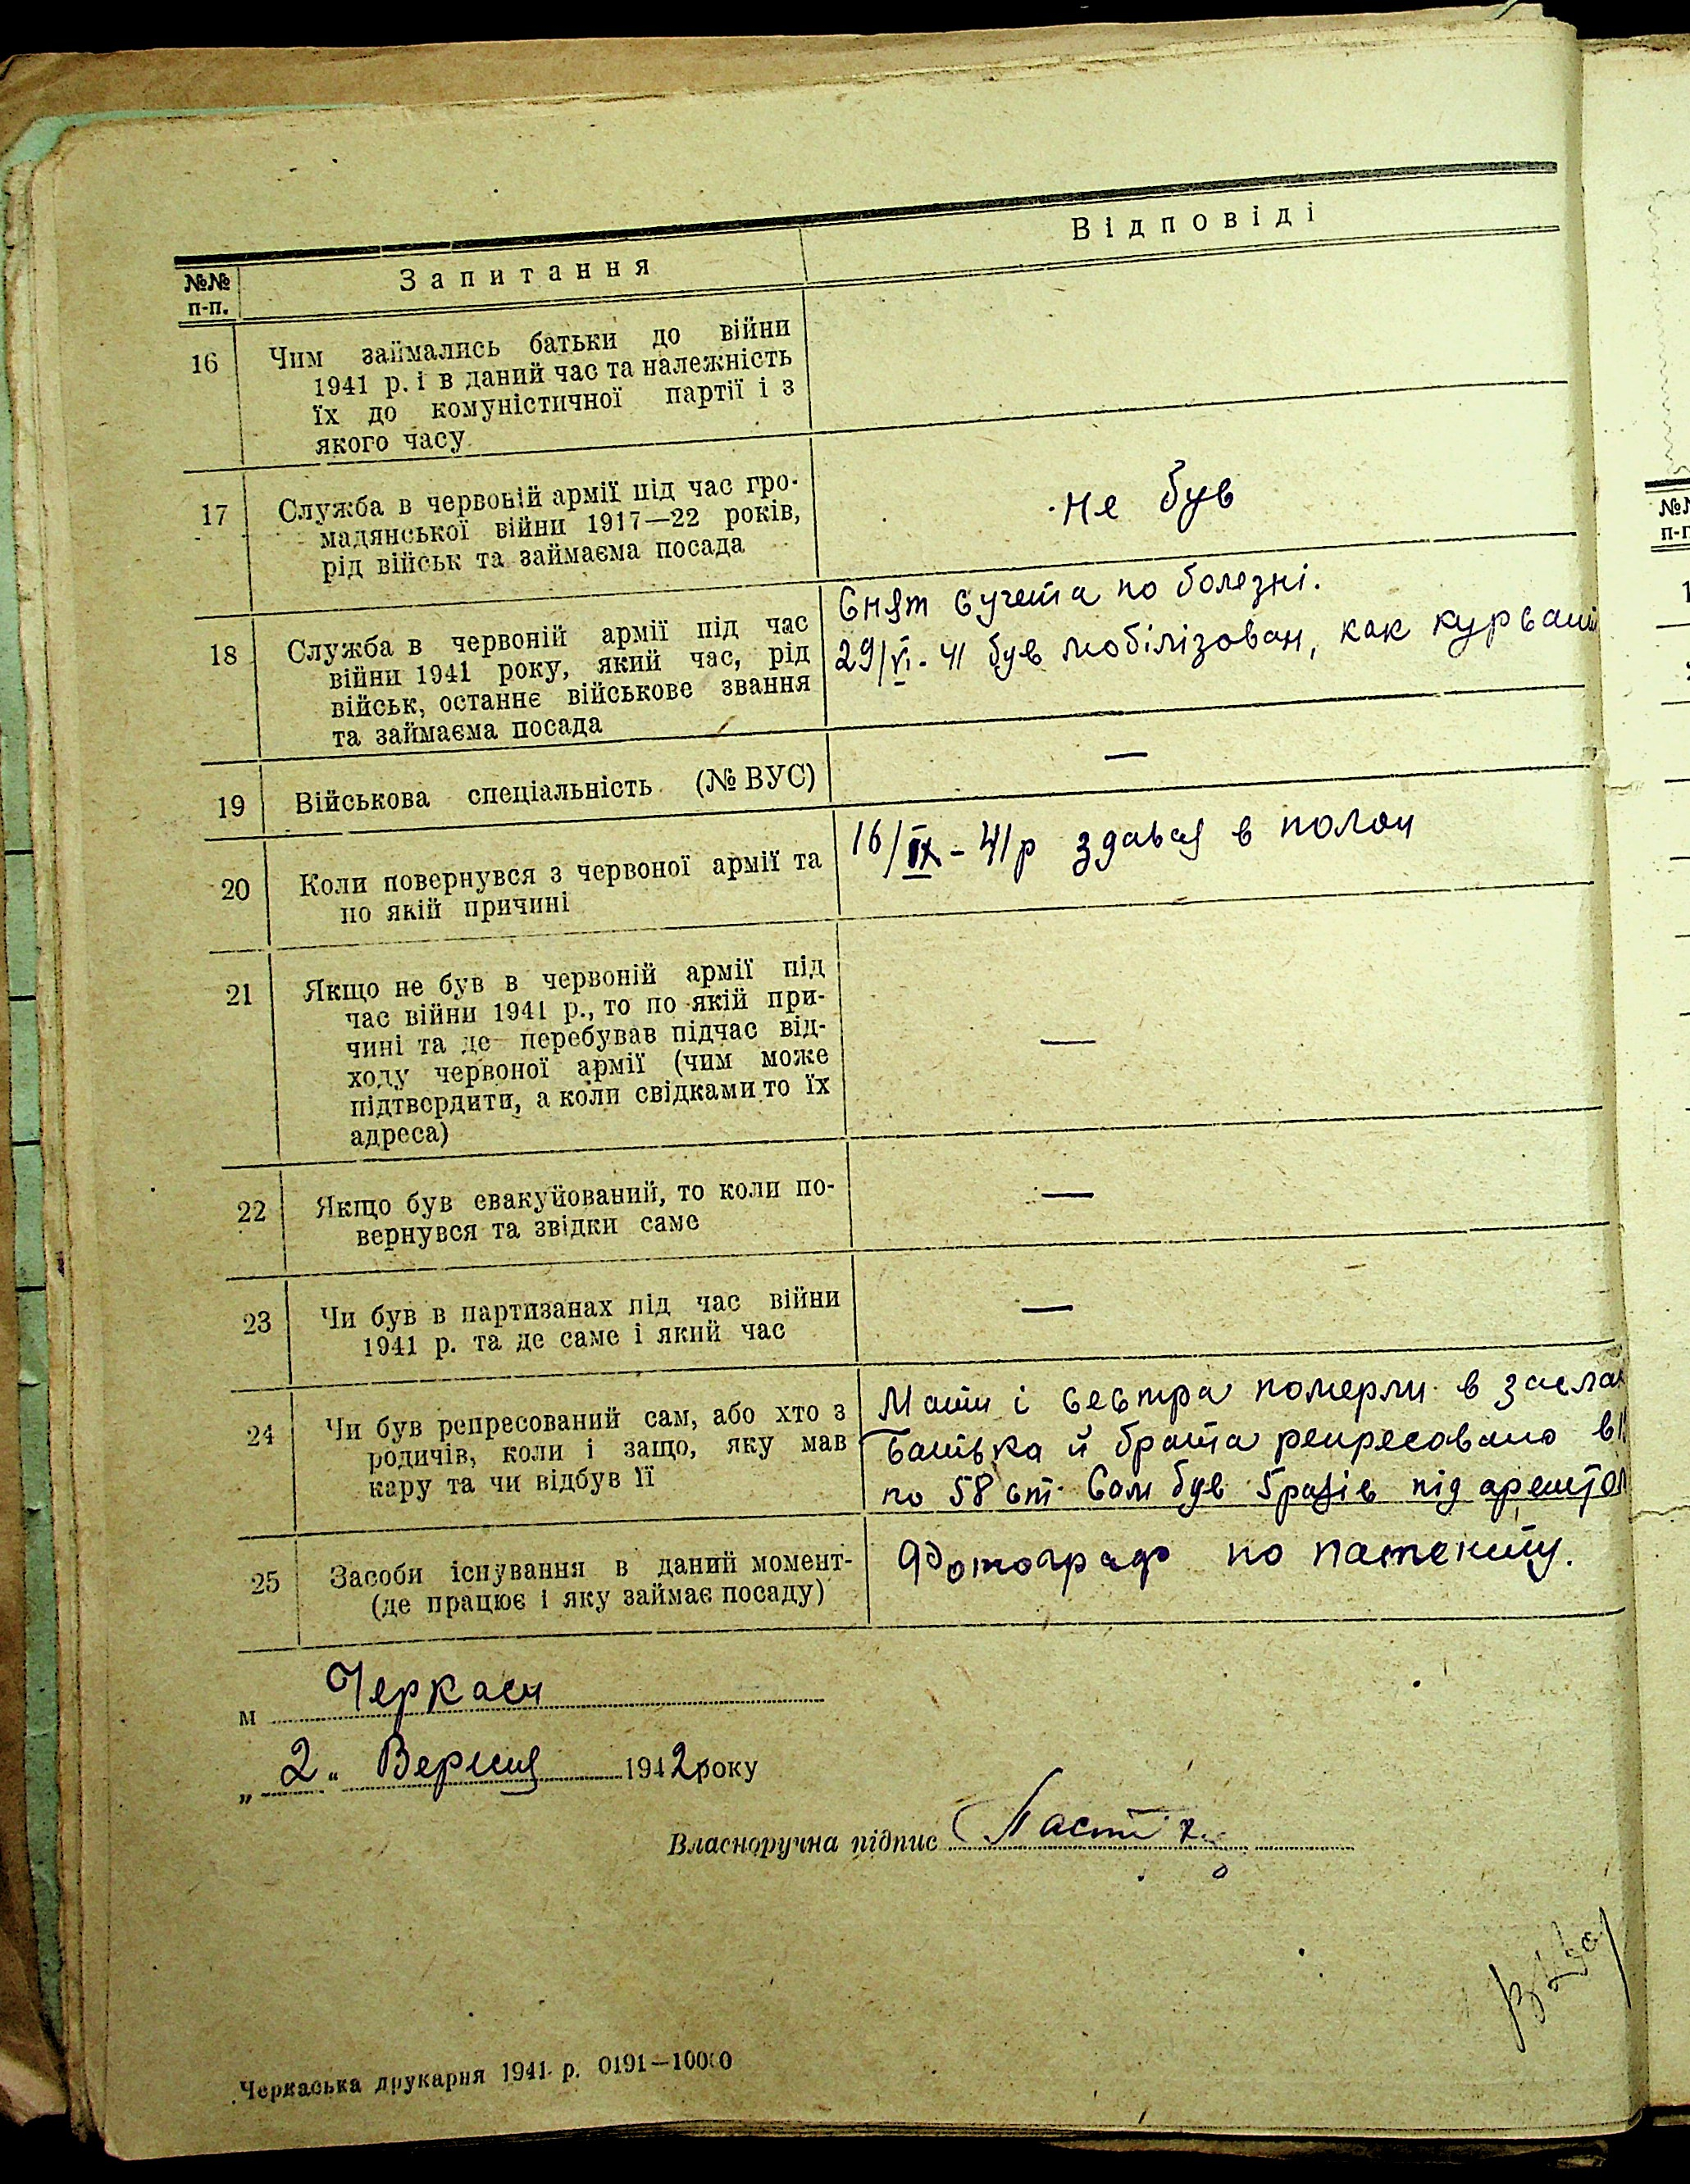 №№ п-п. Запитання Відповіді
16 Чим займались батьки до війни
1941 р. і в даний час та належність
їх до комуністичної партії і з
якого часу
17 Служба в червоній армії під час гро-
мадянської війни 1917—22 років,
рід військ та займаєма посада
не був
18 Служба в червоній армії під час
війни 1941 року, який час, рід
військ, останнє військове звання
та займаєма посада
Снят с учета по болезні.
29/VI-41 був мобілізован, как курсант
19 Військова спеціальність (№ ВУС)
—
20 Коли повернувся з червоної армії та
по якій причині
16/IX-41р здався в полон
21 Якщо не був в червоній армії під
час війни 1941 р., то по якій при-
чині та де перебував підчас від-
ходу червоної армії (чим може
підтвердити, а коли свідками то їх
адреса)
—
22 Якщо був евакуйований, то коли по-
вернувся та звідки саме
—
23 Чи був в партизанах під час війни
1941 р. та де саме і який час
—
24 Чи був репресований сам, або хто з
родичів, коли і защо, яку мав
кару та чи відбув її
Мати і сестра померли в засла
Батька й брата репресовано в
по 58 ст. Сам був 5 разів під арештом
25 Засоби існування в даний момент-
(де працює і яку займає посаду)
Фотограф по патенту.
м Черкаси
„ 2 " Вересня 1942 року
Власноручна підпис
Черкаська друкарня 1941 р. 0191—10000
№№
п-п